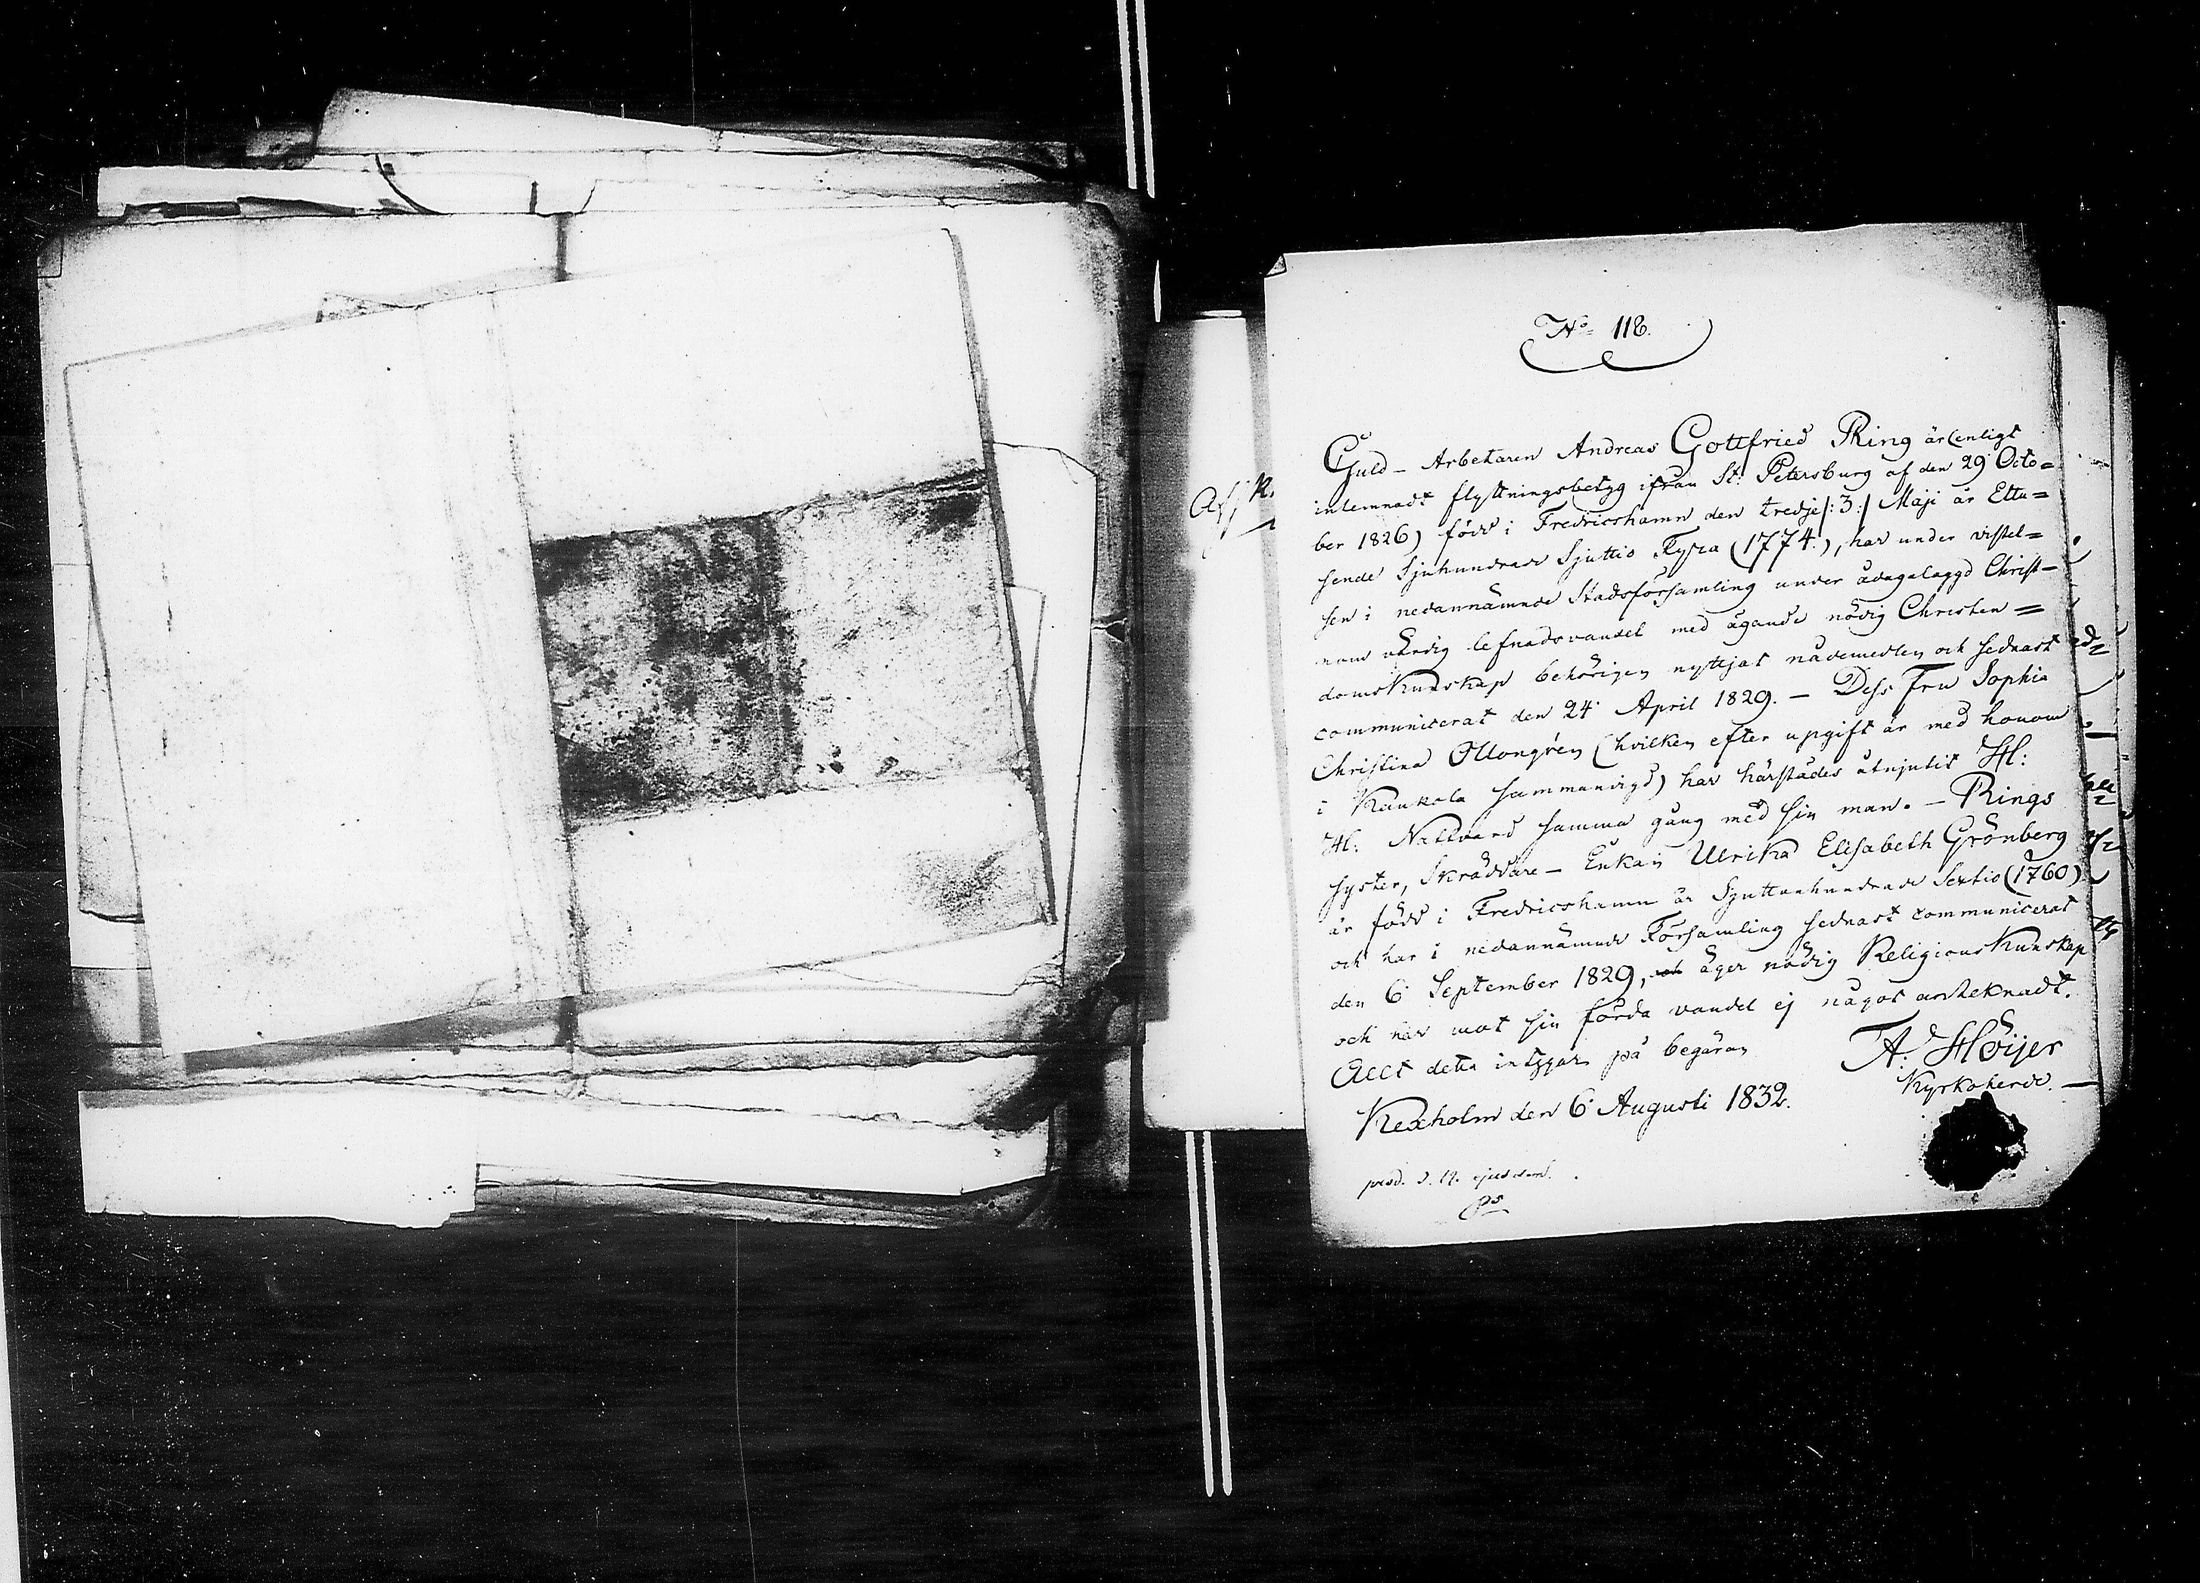 No 118.
Guld-Arbetaren Andreas Gottfried Ring är (enligt
inlemnadt flyttningsbetyg ifrån St. Petersburg af den 29 Octo=
ber 1826) född i Fredricshamn den tredje /:3:/ Maji år Ettu=
sende Sjuhundrade Sjuttio Fyra (1774.), har under vistel=
sen i nedannämnde Stadsförsamling under ådagalaggd Christ=
nom värdig lefnadsvandel med ägande nödig Christen=
domskunskap behörigen nyttjat nådemedlen och sednast
communicerat den 24 April 1829. — Dess Fru Sophia
Christina Ollongren (hvilken efter upgift är med honom
i Kaukola sammanvigd) har härstädes åtnjutit H:
H: Nattvard samma gång med sin man. — Rings
syster, Skräddare-Enkan Ulrika Elisabeth Grönberg
är född i Fredricshamn år Sjuttonhundrade Sextio (1760)
och har i nedannämnde Församling sednast communicerat
den 6 September 1829, och äger nödig Religions Kunskap
och har mot sin förda vandel ej något antecknadt.
Allt detta intygar på begäran
A. Höijer
Kyrkoherde.
Kexholm den 6 Augusti 1832.
prod. d. 12. ejusdem.